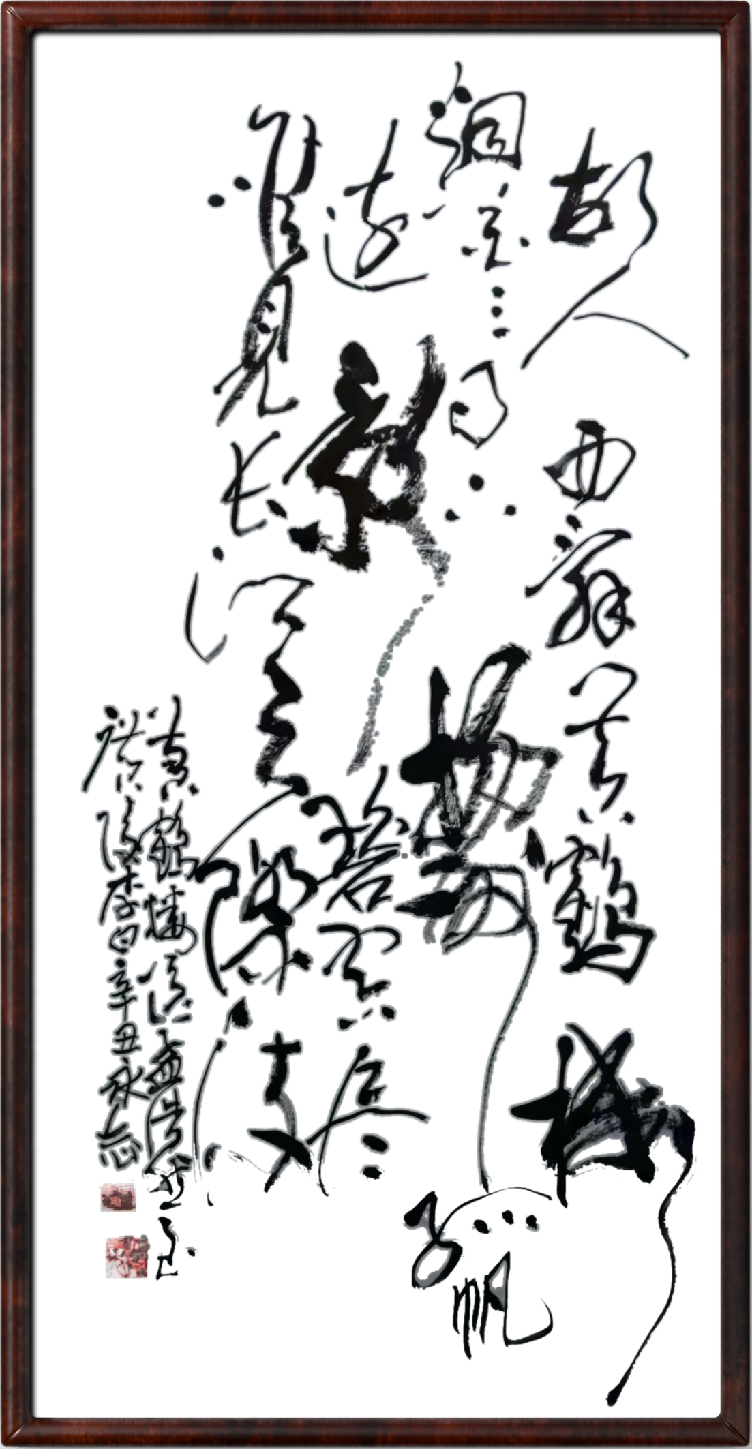 故人西辞黄鹤楼
烟花三月下扬州孤帆
远影碧空尽
唯见长江天际流
黄鹤楼送孟浩然之
广陵李白辛丑永志